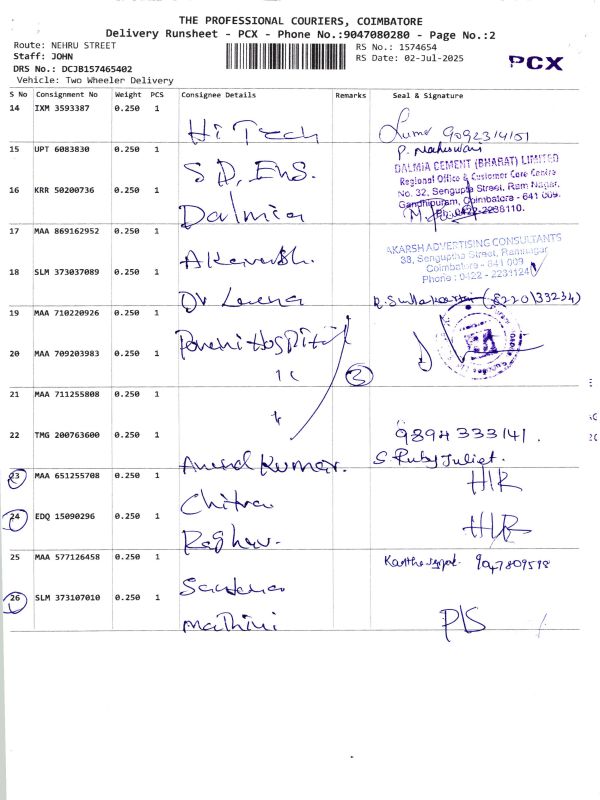 THE PROFESSIONAL COURIERS, COIMBATORE
Delivery Runsheet - PCX - Phone No.:9047080280 - Page No.:2
Route: NEHRU STREET
Staff: JOHN
DRS No.: DCJB157465402
Vehicle: Two Wheeler Delivery
RS No.: 1574654
RS Date: 02-Jul-2025
PCX
S No Consignment No Weight PCS Consignee Details Remarks Seal & Signature
14 IXM 3593387 0.250 1
Hi Tech 9092314151
15 UPT 6083830 0.250 1
S.D. Ens.
P. Maheswari
DALMIA CEMENT (BHARAT) LIMITED
Regional Office & Customer Care Centre
No. 32, Sengupta Street, Ram Nagar,
Gandhipuram, Coimbatore - 641 009.
Ph: 0422-2236110.
16 KRR 50200736 0.250 1
Dalmia
17 MAA 869162952 0.250 1
AKARSH ADVERTISING CONSULTANTS
38, Sengupta Street, Ramnagar
Coimbatore - 641 009
Phone : 0422 - 2233124
18 SLM 373037089 0.250 1
Dr Leena (8220133234)
19 MAA 710220926 0.250 1
Hospital
20 MAA 709203983 0.250 1
2
21 MAA 711255808 0.250 1
22 TMG 200763600 0.250 1
9894333141.
Anend Kumar. S. Ruby Juliet.
23 MAA 651255708 0.250 1
Chitra H/R
24 EDQ 15090296 0.250 1
Raghav. H/R
25 MAA 577126458 0.250 1
9047809598
26 SLM 373107010 0.250 1
Mathini P/S